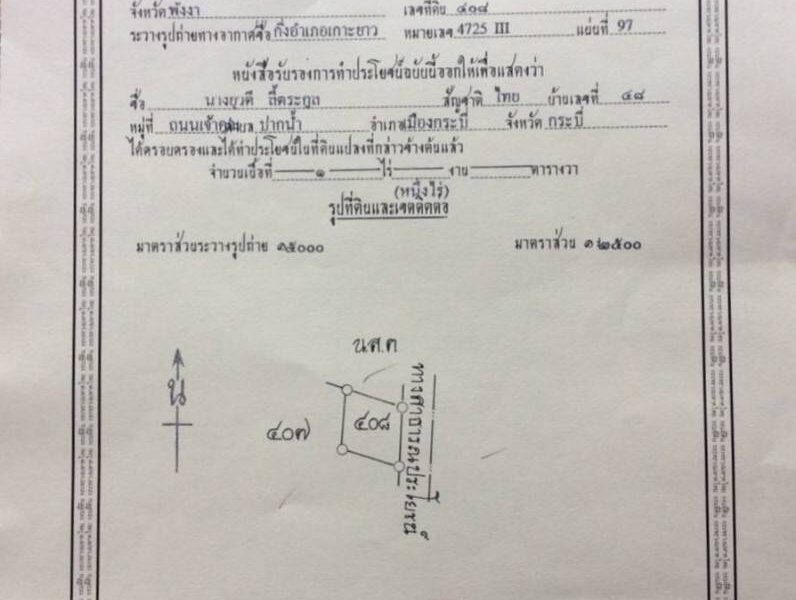 จังหวัด พังงา เลขที่ดิน ๔๐๘
ระวางรูปถ่ายทางอากาศชื่อ กิ่งอำเภอเกาะยาว หมายเลข 4725 III แผ่นที่ 97
หนังสือรับรองการทำประโยชน์ฉบับนี้ออกให้เพื่อแสดงว่า
ชื่อ นางยุวดี ลี้ตระกูล สัญชาติ ไทย บ้านเลขที่ ๔๘
หมู่ที่ ถนนเจ้าคุณ ปากน้ำ อำเภอเมืองกระบี่ จังหวัด กระบี่
ได้ครอบครองและได้ทำประโยชน์ในที่ดินแปลงที่กล่าวข้างต้นแล้ว
จำนวนเนื้อที่ ๑ ไร่ งาน ตารางวา
(หนึ่งไร่)
รูปที่ดินและเขตติดต่อ
มาตราส่วนระวางรูปถ่าย ๑:๕๐๐๐ มาตราส่วน ๑:๒๕๐๐
น.ส.๓
น
๔๐๗
๔๐๘
ทางสาธารณประโยชน์